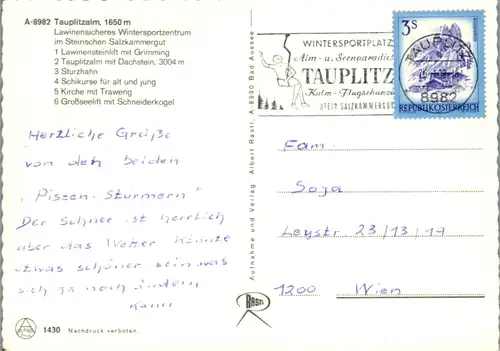 A-8982 Tauplitzalm, 1650 m
Lawinensicheres Wintersportzentrum
im Steirischen Salzkammergut
1 Lawinensteinlift mit Grimming
2 Tauplitzalm mit Dachstein, 3004 m
3 Sturzhahn
4 Schikurse für alt und jung
5 Kirche mit Traweng
6 Großseelift mit Schneiderkogel
Herzliche Grüße
von den beiden
"Pisten-Stürmern"
Der Schnee ist herrlich
aber das Wetter könnte
etwas schöner sein was
sich ja noch ändern
kann
1430 Nachdruck verboten.
Aufnahme und Verlag Albert Rastl, A-8990 Bad Aussee
Rastl
WINTERSPORTPLATZ
Alm- u. Seenparadies
TAUPLITZ
Kulm-Flugschanze
STEIR. SALZKAMMERGUT
TAUPLITZ
8982
3 S
REPUBLIK ÖSTERREICH
Fam.
Soja
Leystr 23/13/19
1200 Wien